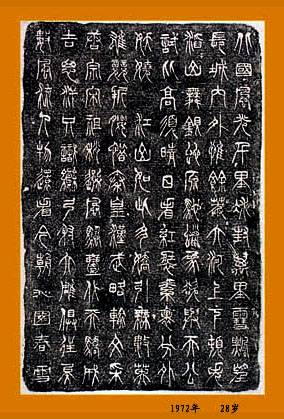 北國風光千里冰封萬里雪飄望
長城內外惟餘莽莽大河上下頓失
滔滔山舞銀蛇原馳蠟象欲與天公
試比高須晴日看紅裝素裹分外
妖嬈 江山如此多嬌引無數英
雄競折腰惜秦皇漢武略輸文采
唐宗宋祖稍遜風騷一代天驕成
吉思汗只識彎弓射大雕俱往矣
數風流人物還看今朝 沁園春雪
1972年 28岁